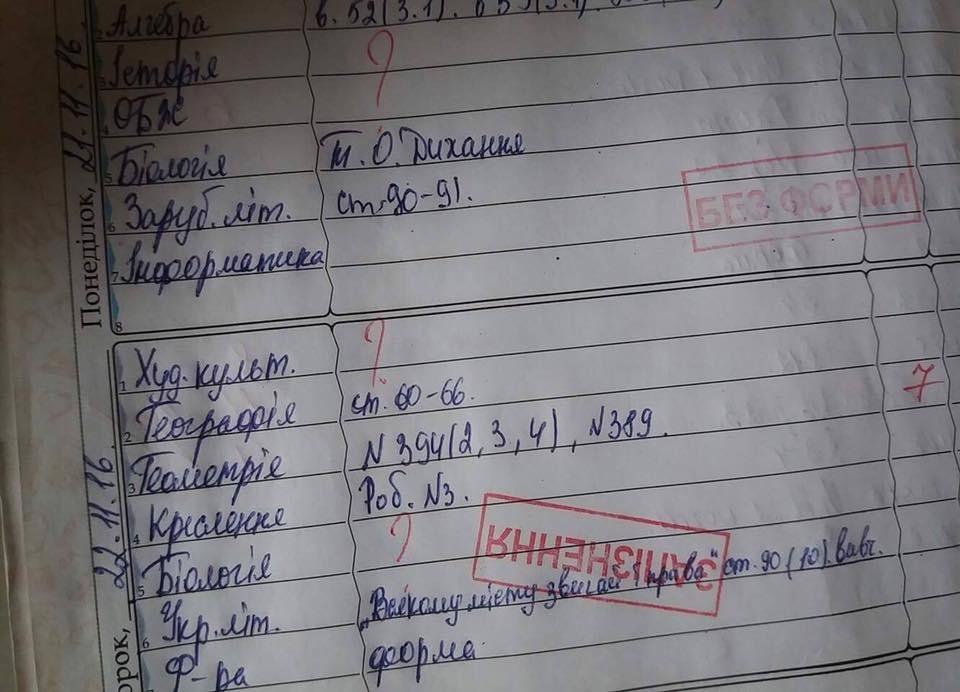 Понеділок, 21.11.16.
2 Алгебра
3 Історія ?
4 ОБЖ
5 Біологія т. О. Дихання
6 Заруб. літ. ст. 90-91.
БЕЗ ФОРМИ
7 Інформатика
8
22.11.16.
1 Худ. культ. ?
2 Географія ст. 60-66. 7
3 Геометрія N 394(2, 3, 4), N389.
4 Креслення Роб. N3.
5 Біологія ?
ЗАПІЗНЕННЯ
6 Укр. літ. „Всякому місту звичай і права" ст. 90 (10) вивч.
Ф-ра форма